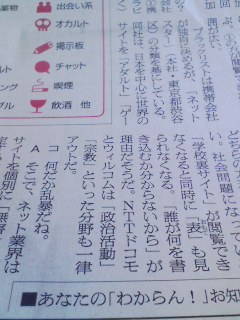 出会い系
オカルト
掲示板
チャット
喫煙
飲酒 他
ブラックリストは携帯会社
が独自に決めるが、「ネット
スター」（本社・東京都渋谷
区）の分類を基にしている。
同社は、日本を中心に世界の
サイトを「アダルト」「ゲー
い。社会問題になってい
「学校裏サイト」が閲覧でき
なくなると同時に「表」も見
られなくなる。「誰が何を書
き込むか分からないから」が
理由だそうだ。NTTドコモ
とウィルコムは「政治活動」
「宗教」といった分野も一律
アウトだ。
C 何だか乱暴だね。
A そこで、ネット業界は
サイトを個別に「有害
■あなたの「わからん！」お知